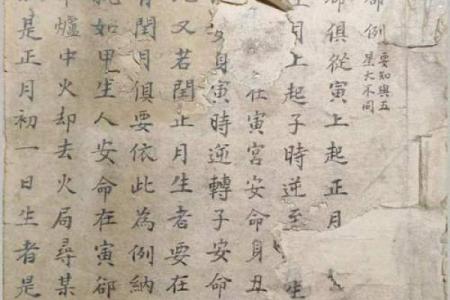 例 要知與五
星大不同
俱從寅上起正月
月上起子時逆至生
在寅宮安命身丑
身寅時逆轉子安命
又若閏正月生者要在
閏月俱要依此為例納
如甲生人安命在寅卻
爐中火却去火局尋某
是正月初一日生者是